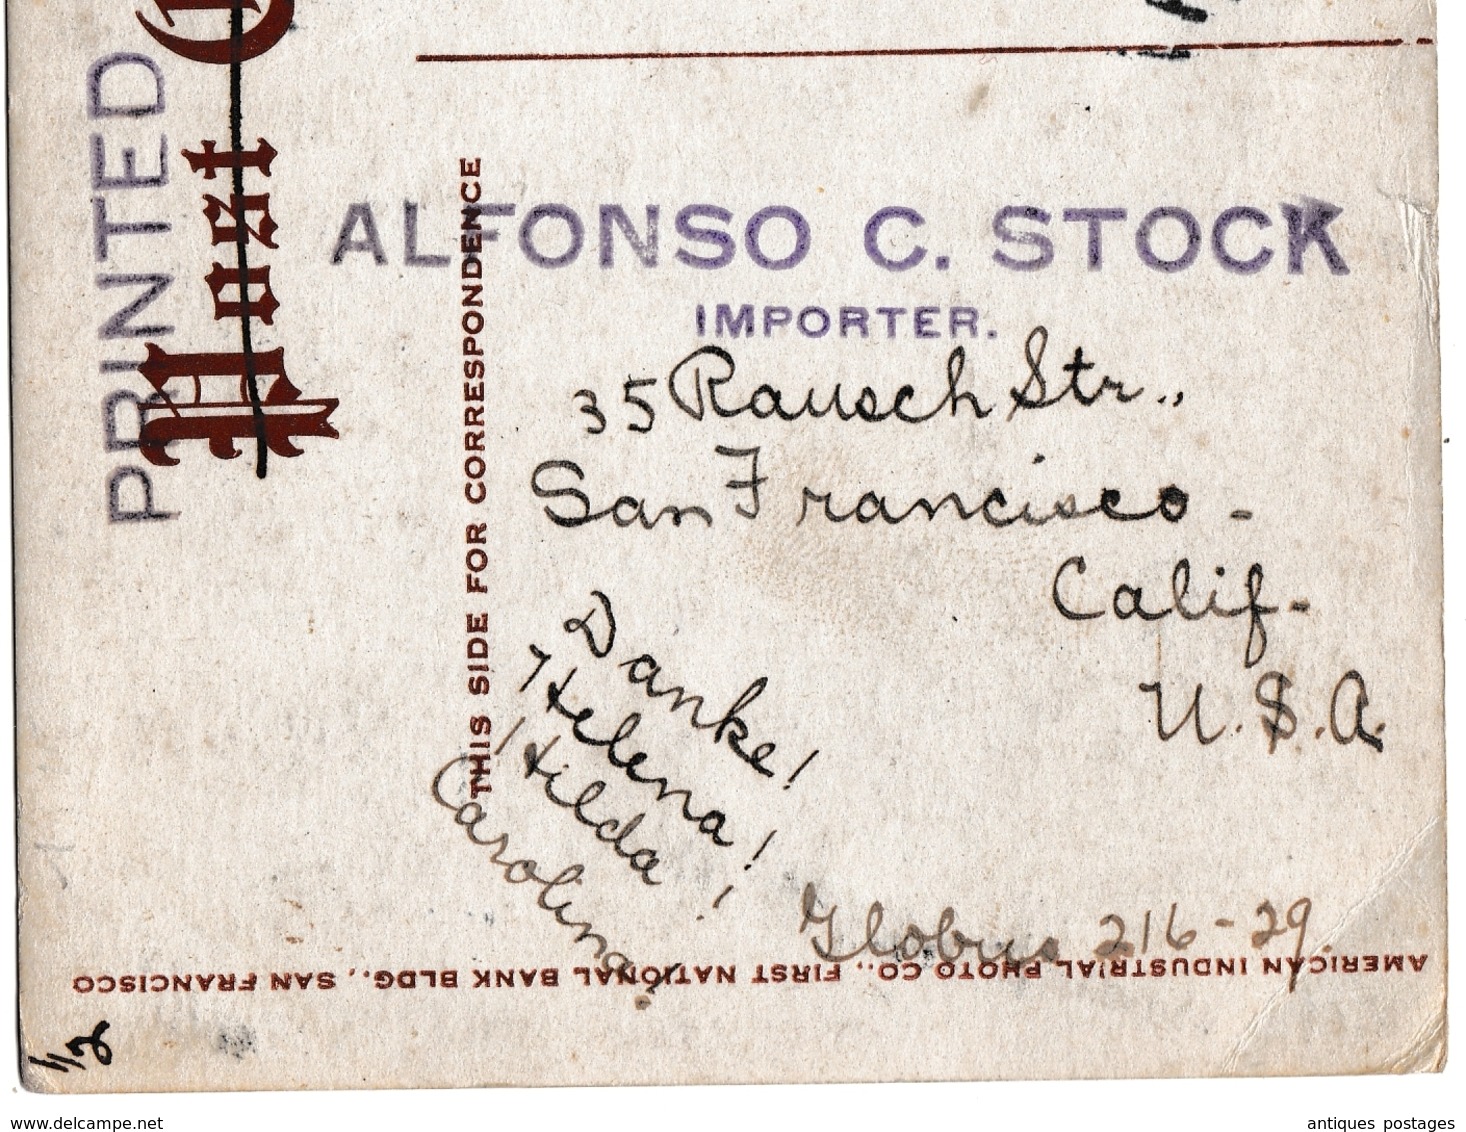 PRINTED
Post
THIS SIDE FOR CORRESPONDENCE
ALFONSO C. STOCK
IMPORTER.
35 Rausch Str.,
San Francisco -
Calif-
U.S.A.
Danke!
Helena!
Hilda!
Carolina!
Globus 216-29
AMERICAN INDUSTRIAL PHOTO CO., FIRST NATIONAL BANK BLDG., SAN FRANCISCO
www.delcampe.net
antiques postages